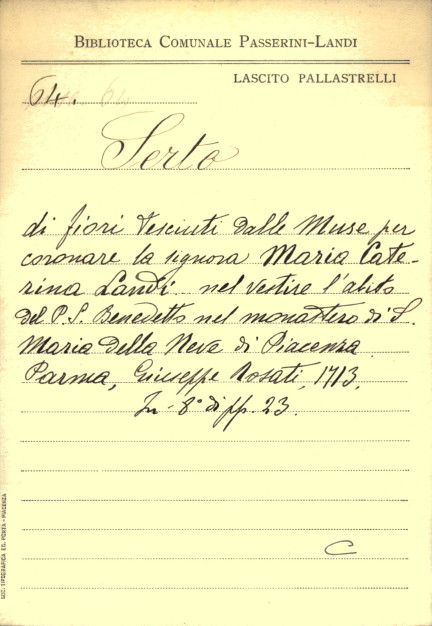 BIBLIOTECA COMUNALE PASSERINI-LANDI
LASCITO PALLASTRELLI
64. 64
Serto
di fiori tesciuti dalle Muse per
coronare la signora Maria Cate-
rina Landi nel vestire l'abito
del P. S. Benedetto nel monastero di S.
Maria della Neve di Piacenza.
Parma, Giuseppe Rosati, 1713.
In-8° di pp. 23.
C
SOC. TIPOGRAFICA ED. PONTA-PIACENZA